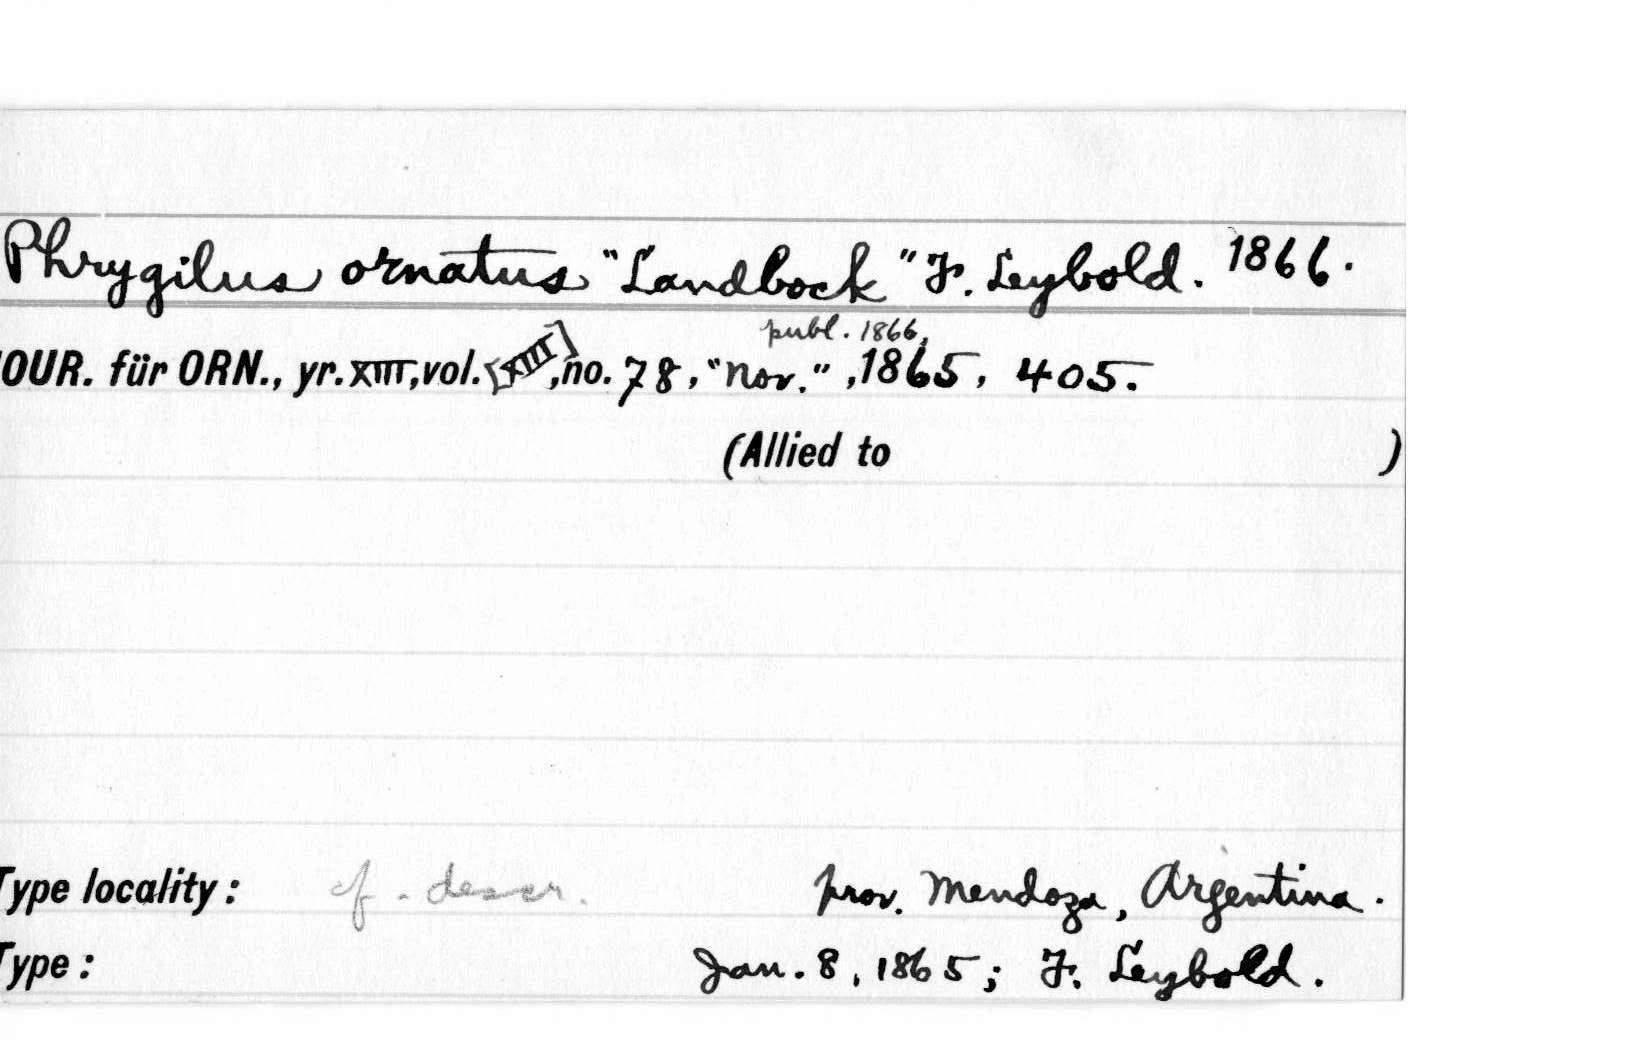 Phrygilus ornatus "Landbock" F. Leybold. 1866.
publ. 1866,
OUR. für ORN., yr. XIII, vol. [XIII], no. 78, "Nov.", 1865, 405.
(Allied to )
Type locality: cf. descr. prov. Mendoza, Argentina.
Type: Jan. 8, 1865; F. Leybold.